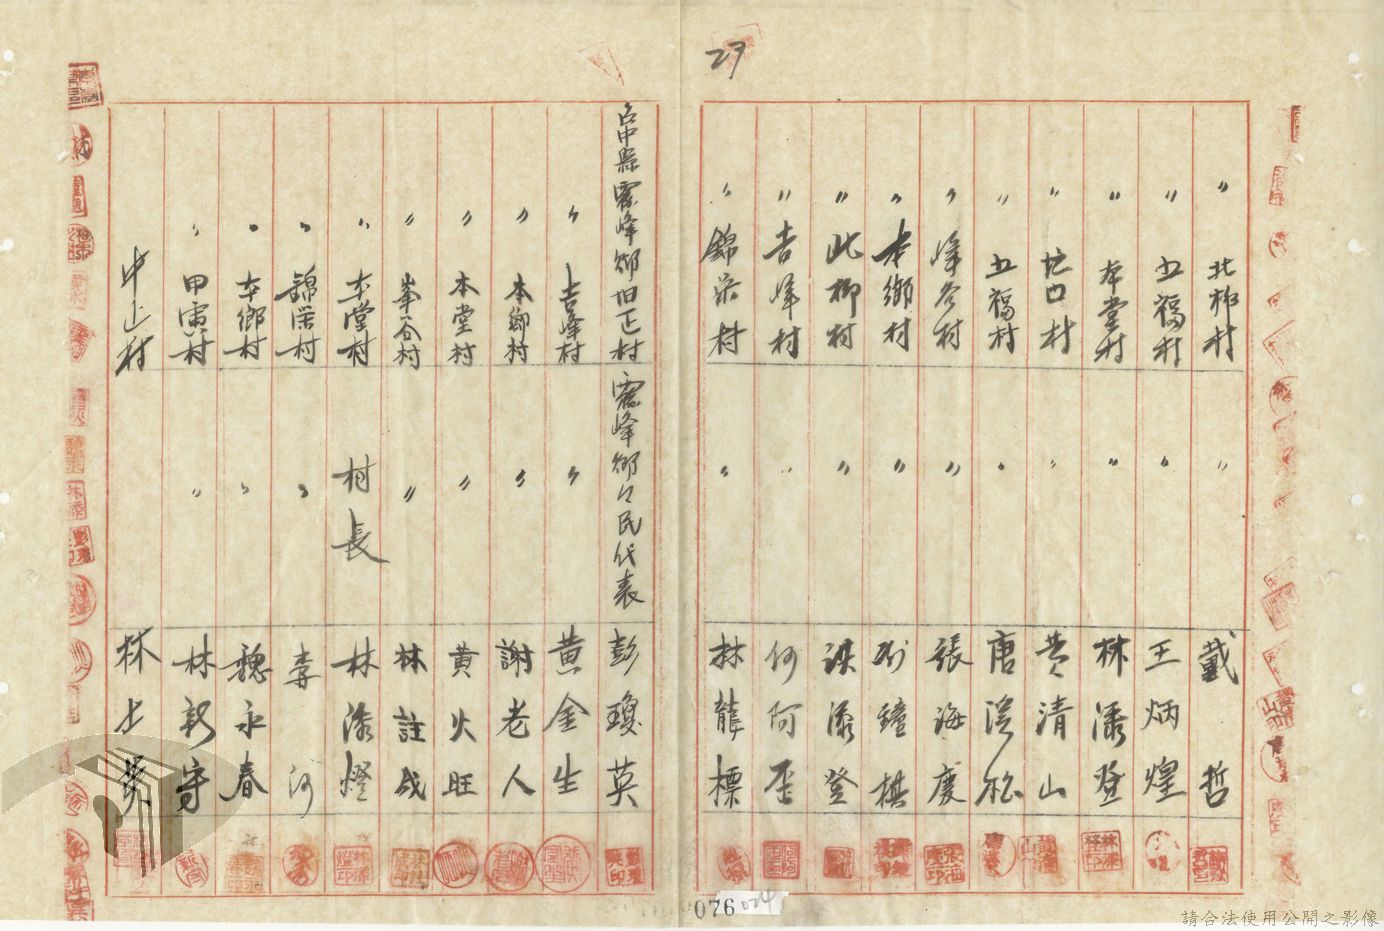 27
〃 北柳村 〃 戴哲
〃 五福村 〃 王炳煌
〃 本堂村 〃 林添登
〃 坑口村 〃 黃清山
〃 五福村 〃 唐深松
〃 峰谷村 〃 張海慶
〃 本鄉村 〃 劉鐘棋
〃 北柳村 〃 洪添登
〃 吉峰村 〃 何阿歪
〃 錦榮村 〃 林龍標
台中縣霧峰鄉旧正村 霧峰鄉人民代表 彭瓊英
〃 吉峰村 〃 黃金生
〃 本鄉村 〃 謝老人
〃 本堂村 〃 黃火旺
〃 峯谷村 〃 林註成
〃 本堂村 村長 林添燈
〃 錦榮村 〃 李河
〃 本鄉村 〃 魏永春
〃 甲寅村 〃 林新守
中正村 林士英
076
024
請合法使用公開之影像